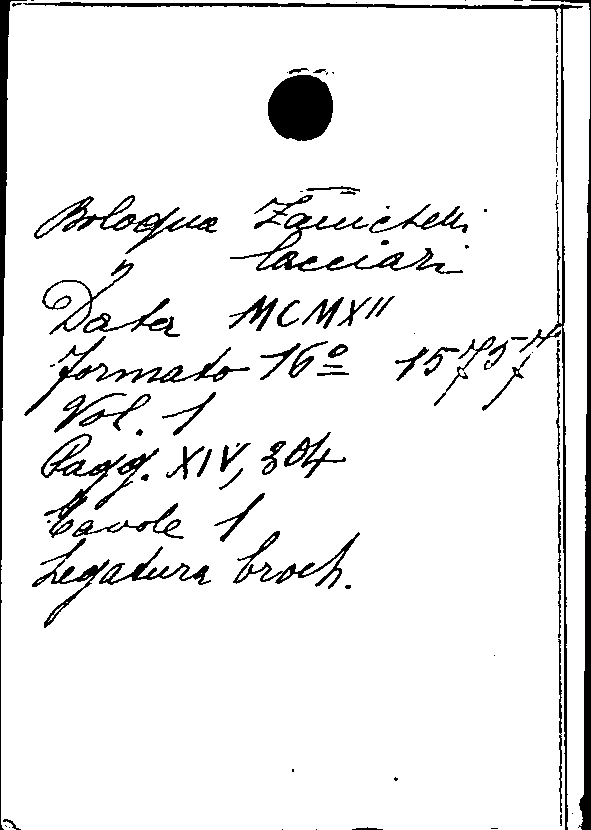 Bologna Zanichelli
" Cacciari
Data MCMXII
formato 16º 15757
Vol. 1
Pagg. XIV, 304
Tavole 1
Legatura broch.